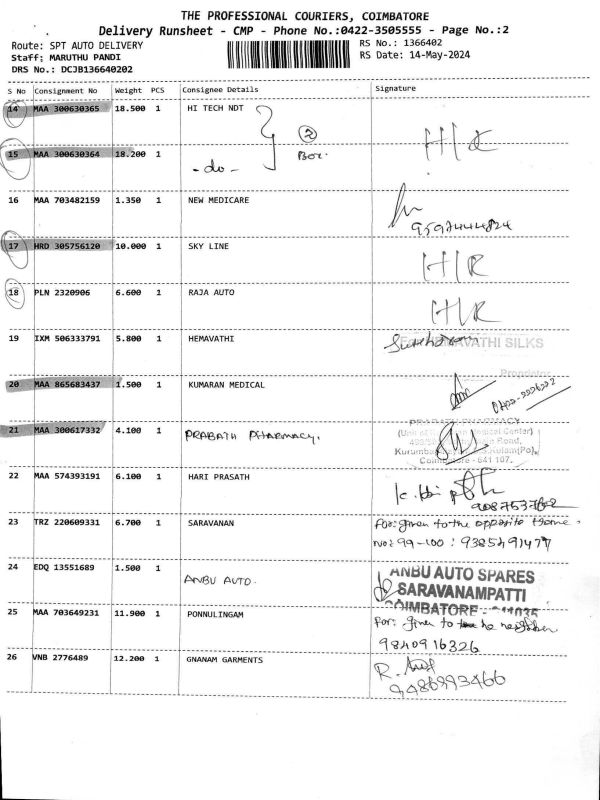 THE PROFESSIONAL COURIERS, COIMBATORE
Delivery Runsheet - CMP - Phone No.:0422-3505555 - Page No.:2
Route: SPT AUTO DELIVERY
RS No.: 1366402
Staff; MARUTHU PANDI
RS Date: 14-May-2024
DRS No.: DCJB136640202
S No Consignment No Weight PCS Consignee Details Signature
14 MAA 300630365 18.500 1 HI TECH NDT
② Box.
H/R
15 MAA 300630364 18.200 1 -do-
16 MAA 703482159 1.350 1 NEW MEDICARE
17 HRD 305756120 10.000 1 SKY LINE H/R
18 PLN 2320906 6.600 1 RAJA AUTO H/R
19 IXM 506333791 5.800 1 HEMAVATHI
SILKS
Proprietor
20 MAA 865683437 1.500 1 KUMARAN MEDICAL
21 MAA 300617332 4.100 1 PRABATH PHARMACY.
PRABATH PHARMACY
22 MAA 574393191 6.100 1 HARI PRASATH
23 TRZ 220609331 6.700 1 SARAVANAN For: given to the opposite Home.
No: 99-100 : 9385491477
24 EDQ 13551689 1.500 1 ANBU AUTO.
ANBU AUTO SPARES
SARAVANAMPATTI
COIMBATORE
25 MAA 703649231 11.900 1 PONNULINGAM For: given to the neighber
9840916326
26 VNB 2776489 12.200 1 GNANAM GARMENTS
9486993466